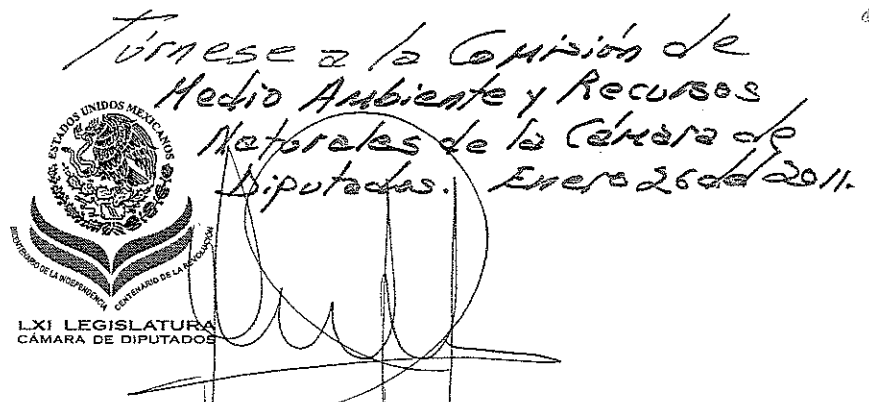 Túrnese a la Comisión de
Medio Ambiente y Recursos
Naturales de la Cámara de
Diputados. Enero 26 del 2011.
ESTADOS UNIDOS MEXICANOS
BICENTENARIO DE LA INDEPENDENCIA
CENTENARIO DE LA REVOLUCIÓN
LXI LEGISLATURA
CÁMARA DE DIPUTADOS